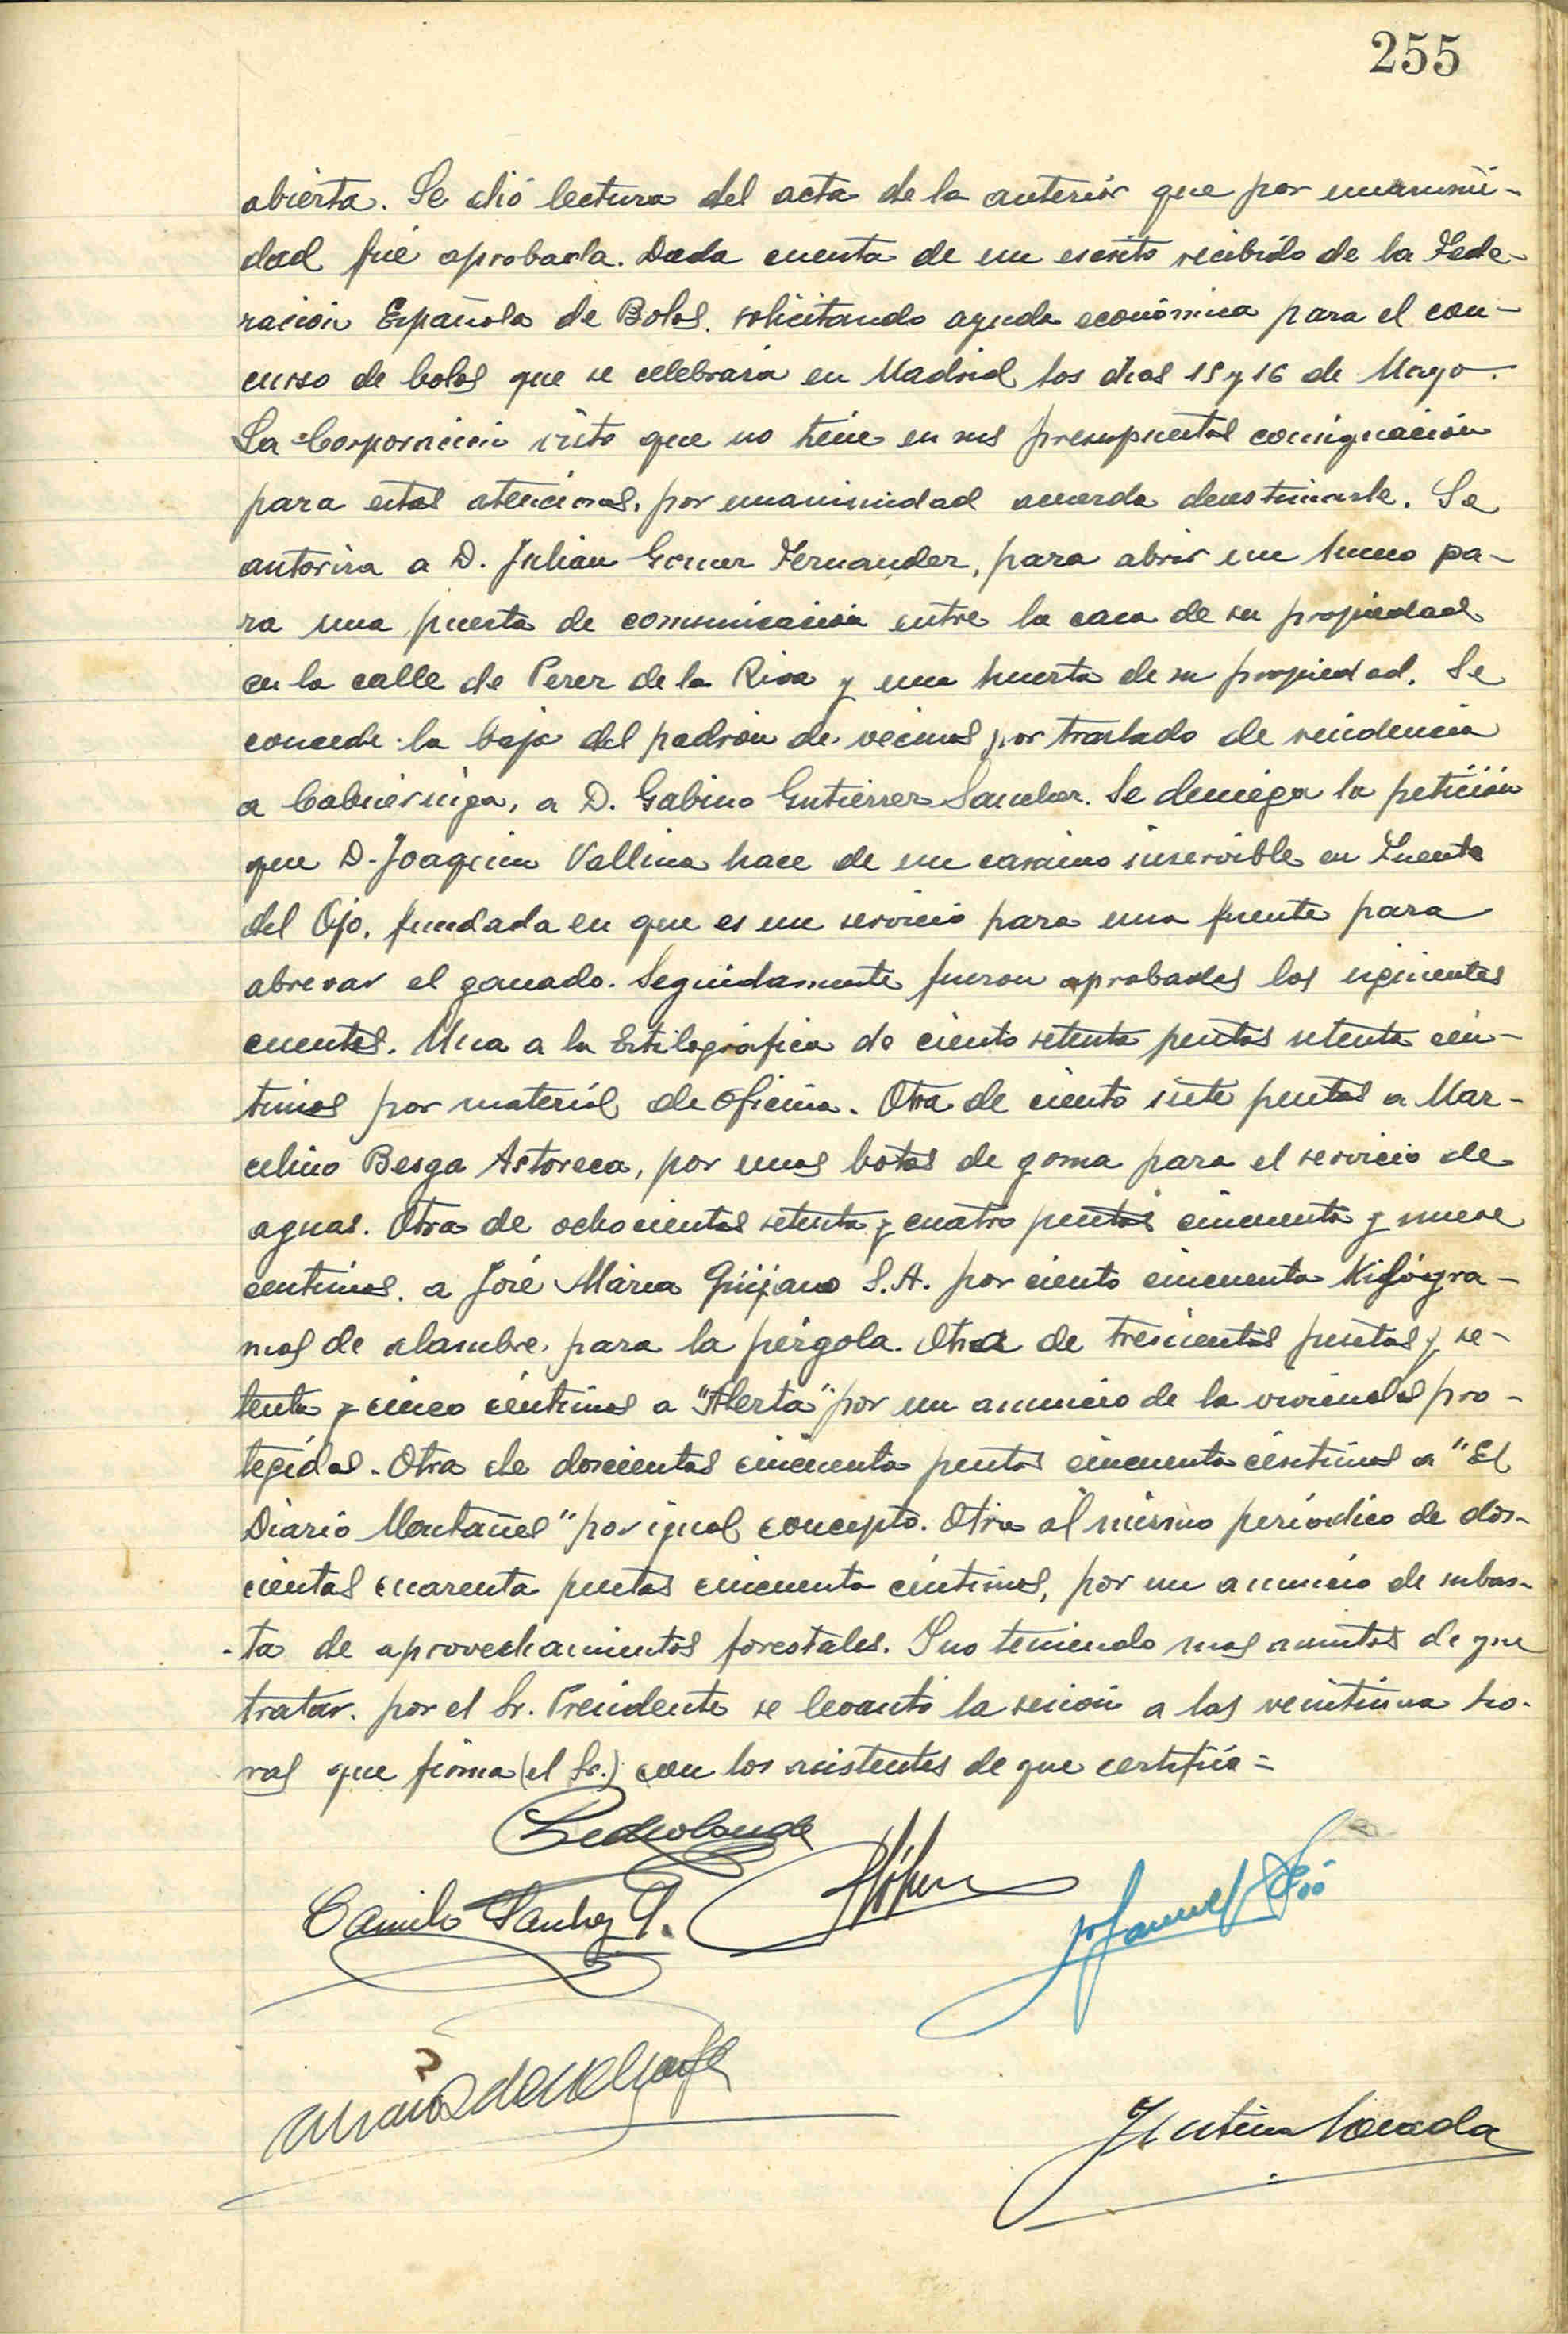 255
abierta. Se dió lectura del acta de la anterior que por unanimi-
dad fué aprobada. Dada cuenta de un escrito recibido de la Fede-
racion Española de Bolos. solicitando ayuda económica para el con-
curso de bolos que se celebrará en Madrid los dias 15 y 16 de Mayo.
La Corporacion visto que no tiene en sus presupuestos consignacion
para estas atenciones, por unanimidad acuerda desestimarle. Se
autoriza a D. Julian Gomez Fernandez, para abrir un hueco pa-
ra una puerta de comunicacion entre la casa de su propiedad
en la calle de Perez de la Riva y una huerta de su propiedad. Se
concede la baja del padrón de vecinos por traslado de residencia
a Cabuerniga, a D. Gabino Gutierrez Sanchez. Se deniega la petición
que D. Joaquin Vallina hace de un camino inservible en Fuente
del Ojo. fundada en que es un servicio para una fuente para
abrevar el ganado. Seguidamente fueron aprobadas las siguientes
cuentas. Una a la Estilográfica de ciento setenta pesetas setenta cén-
timos por material de oficina. Otra de ciento siete pesetas a Mar-
celino Besga Astoreca, por unas botas de goma para el servicio de
aguas. Otra de ochocientas setenta y cuatro pesetas cincuenta y nueve
centimos. a José Maria Quijano S.A. por ciento cincuenta Kilógra-
mos de alambre para la pérgola. Otra de trescientas pesetas y se-
tenta y cinco céntimos a "Alerta" por un anuncio de la viviendas pro-
tegidas. Otra de doscientas cincuenta pesetas cincuenta céntimos a "El
Diario Montañes" por igual concepto. Otra al mismo periódico de dos-
cientas cuarenta pesetas cincuenta céntimos, por un anuncio de subas-
-ta de aprovechamientos forestales. Y no teniendo mas asuntos de que
tratar. por el Sr. Presidente se levantó la sesion a las veintiuna ho-
ras que firma (el Sr.) con los asistentes de que certifico=
Camilo Sanchez G.
Manuel